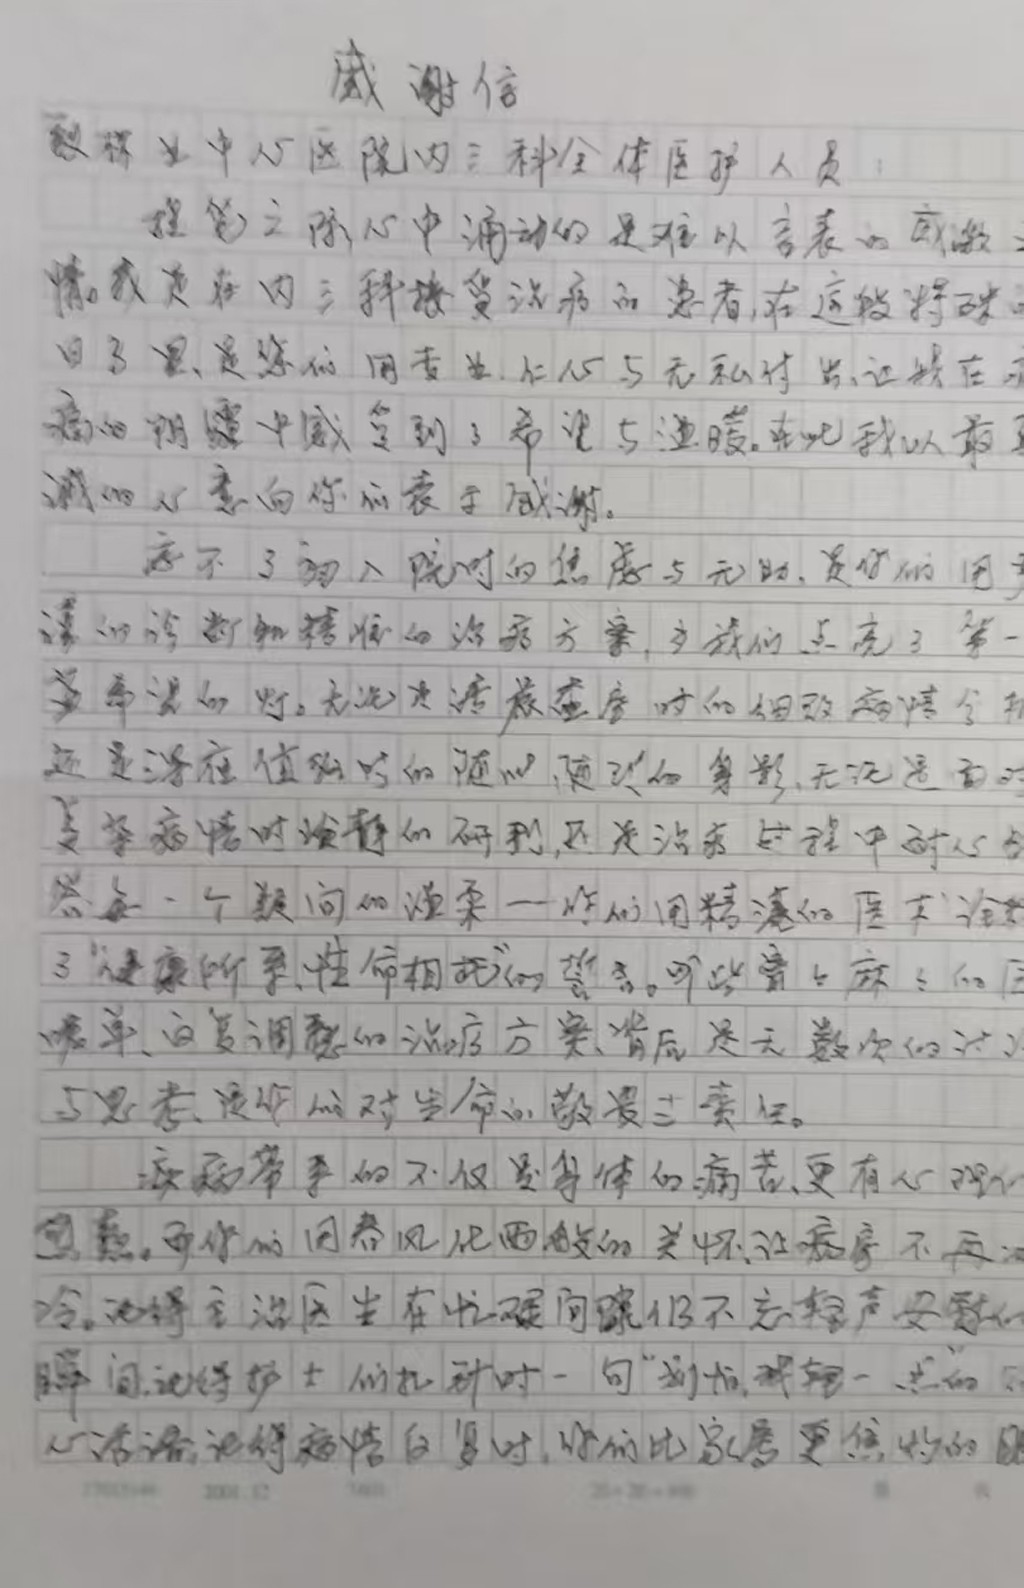 感谢信
中心医院内三科全体医护人员：
提笔之际,心中涌动的是难以言表的感激之
情。我是在内三科接受治病的患者,在这段特殊
日子里、是您们用专业、仁心与无私付出、让我在
病的阴霾中感受到了希望与温暖。在此我以最
诚的心意向你们表于感谢。
忘不了初入院时的焦虑与无助、是你们用
谨的诊断和精准的治病方案,为我们点亮了第一
盏希望的灯。无论是清晨查房时的细致病情分析
还是深夜值班时的随叫、随到的身影、无论是面对
复杂病情时冷静的研判,还是治病过程中耐心
答每一个疑问的温柔——你们用精湛的医术诠释
了“健康所系,性命相托”的誓言。那些密密麻麻的医
嘱单、反复调整的治病方案、背后是无数次的讨论
与思考、是你们对生命的敬畏与责任。
疾病带来的不仅是身体的痛苦、更有心理
煎熬。而你们用春风化雨般的关怀、让病房不再
冷。记得主治医生在忙碌间隙仍不忘轻声安慰的
瞬间、记得护士们扎针时一句“别怕,我轻一点”的
心话语、记得病情反复时,你们比家属更焦灼的眼